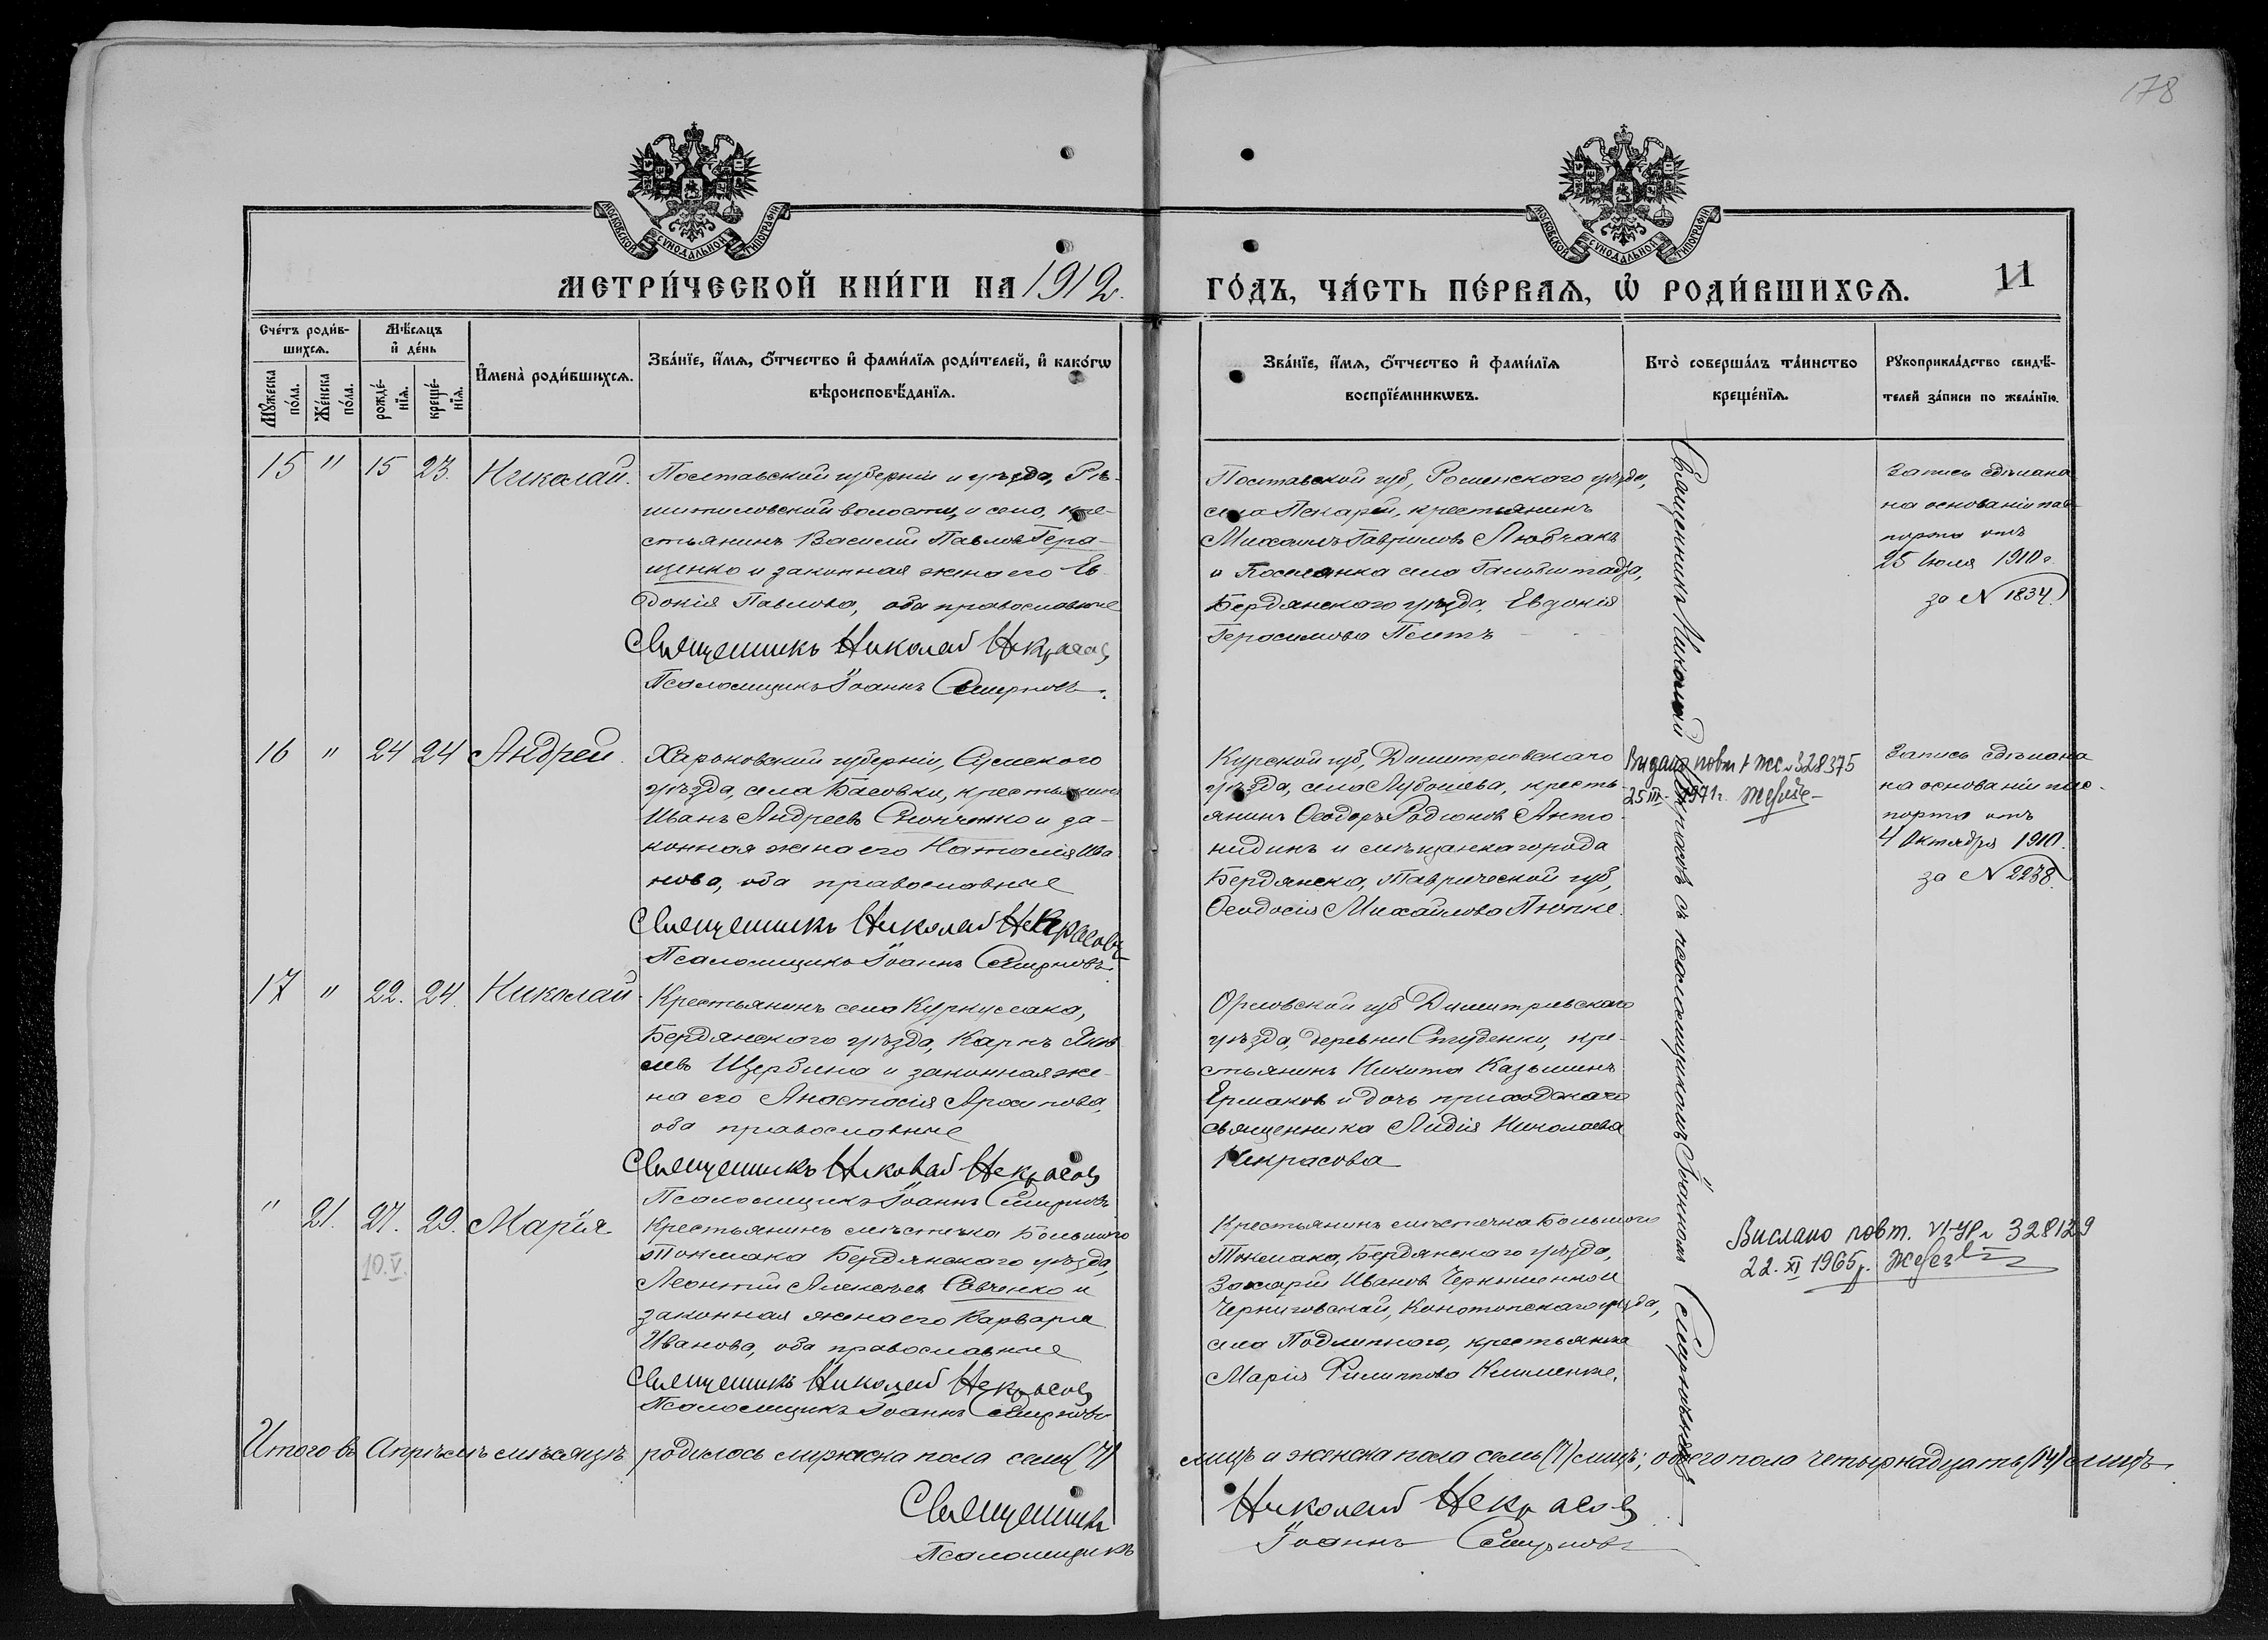 178
МОСКОВСКОЙ СУНОДАЛЬНОЙ ТИПОГРАФІИ
МОСКОВСКОЙ СУНОДАЛЬНОЙ ТИПОГРАФІИ
МЕТРИ́ЧЕСКОЙ КНИ́ГИ НА 1912
ГО́ДЪ, ЧА́СТЬ ПЕ́РВАЯ, Ѡ҆ РОДИ́ВШИХСЯ.
11
Сче́тъ роди́в-
шихся.
Мѣ́сяцъ
и҆ де́нь
Мꙋ́жеска по́ла.
Же́нска по́ла.
рожде́-нїя.
креще́-нїя.
И҆мена̀ роди́вшихся.
Зва́нїе, и҆́мя, ѻ҆́тчество и҆ фами́лїя роди́телей, и҆ како́гѡ
вѣроисповѣ́данїя.
Зва́нїе, и҆́мя, ѻ҆́тчество и҆ фами́лїя
воспрїе́мникѡвъ.
Кто̀ соверша́лъ та́инство
креще́нїя.
Рꙋкоприкла́дство свидѣ́-
телей за́писи по жела́нїю.
15 " 15 23. Николай.
Полтавской губерніи и уѣзда, Рѣ-
шитиловской волости, и села, кре-
стьянинъ Василій Павловъ Гера-
щенко и законная жена его Ев-
докія Павлова, оба православные
Священникъ Николай Некрасовъ
Псаломщикъ Іоаннъ Смирновъ.
Полтавской губ, Роменскаго уѣзда,
села Пекарей, крестьянинъ
Михаилъ Гавриловъ Любчакъ
и Поселянка села Гальбштадта,
Бердянскаго уѣзда, Евдокія
Герасимова
Запись сдѣлана
на основаніи пас-
порта отъ
25 Іюля 1910 г
за N 1834.
16 " 24 24 Андрей.
Харьковской губерніи, Сумскаго
уѣзда, села Басовки, крестьянинъ
Иванъ Андреевъ и за-
конная жена его Наталія Ива-
нова, оба православные
Священникъ Николай Некрасовъ
Псаломщикъ Іоаннъ Смирновъ.
Курской губ, Димитріевскаго
уѣзда, села, кресть-
янинъ Ѳеодоръ Родіоновъ Анто-
нидинъ и мѣщанка города
Бердянска, Таврической губ,
Ѳеодосія Михайлова
Видано повт 328375
25 III 1971 г.
Запись сдѣлана
на основаніи пас-
порта отъ
4 Октября 1910.
за N 2238.
17 " 22. 24. Николай
Крестьянинъ села Куркулака,
Бердянскаго уѣзда, Карпъ Яков-
левъ Щербина и законная же-
на его Анастасія,
оба православные
Священникъ Николай Некрасовъ
Псаломщикъ Іоаннъ Смирновъ
Орловской губ Димитріевскаго
уѣзда, деревни Студенки, кре-
стьянинъ Никита Казьминъ
Ермаковъ и дочь приходскаго
священника Лидія Николаева
Некрасова
" 21. 27. 29. Марія
10.V.
Крестьянинъ мѣстечка Большого
Токмака Бердянскаго уѣзда,
Леонтій Алексѣевъ Савченко и
законная жена его Варвара
Иванова, оба православные
Священникъ Николай Некрасовъ
Псаломщикъ Іоаннъ Смирновъ
Крестьянинъ мѣстечка Большого
Токмака, Бердянскаго уѣзда,
Захарій Ивановъ
Черниговской, Конотопскаго уѣзда,
села Подлипнаго, крестьянка
Марія Филиппова Клименко.
Вислано повт. 328129
22. XI 1965 р.
Священникъ Николай Некрасовъ съ псаломщикомъ Іоанномъ Смирновымъ
Итого въ Апрѣлѣ мѣсяцѣ родилось мужеска пола семь (7)
лицъ и женска пола семь (7) лицъ; обоего пола четырнадцать (14) лицъ.
Священникъ Николай Некрасовъ
Псаломщикъ Іоаннъ Смирновъ